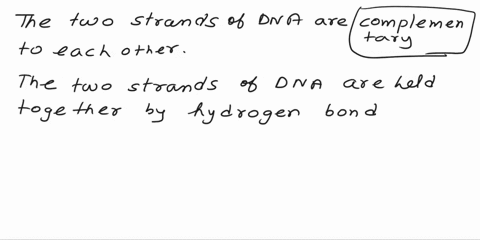 The two strands of DNA are complemen
tary
to each other.
The two strands of DNA are held
together by hydrogen bond